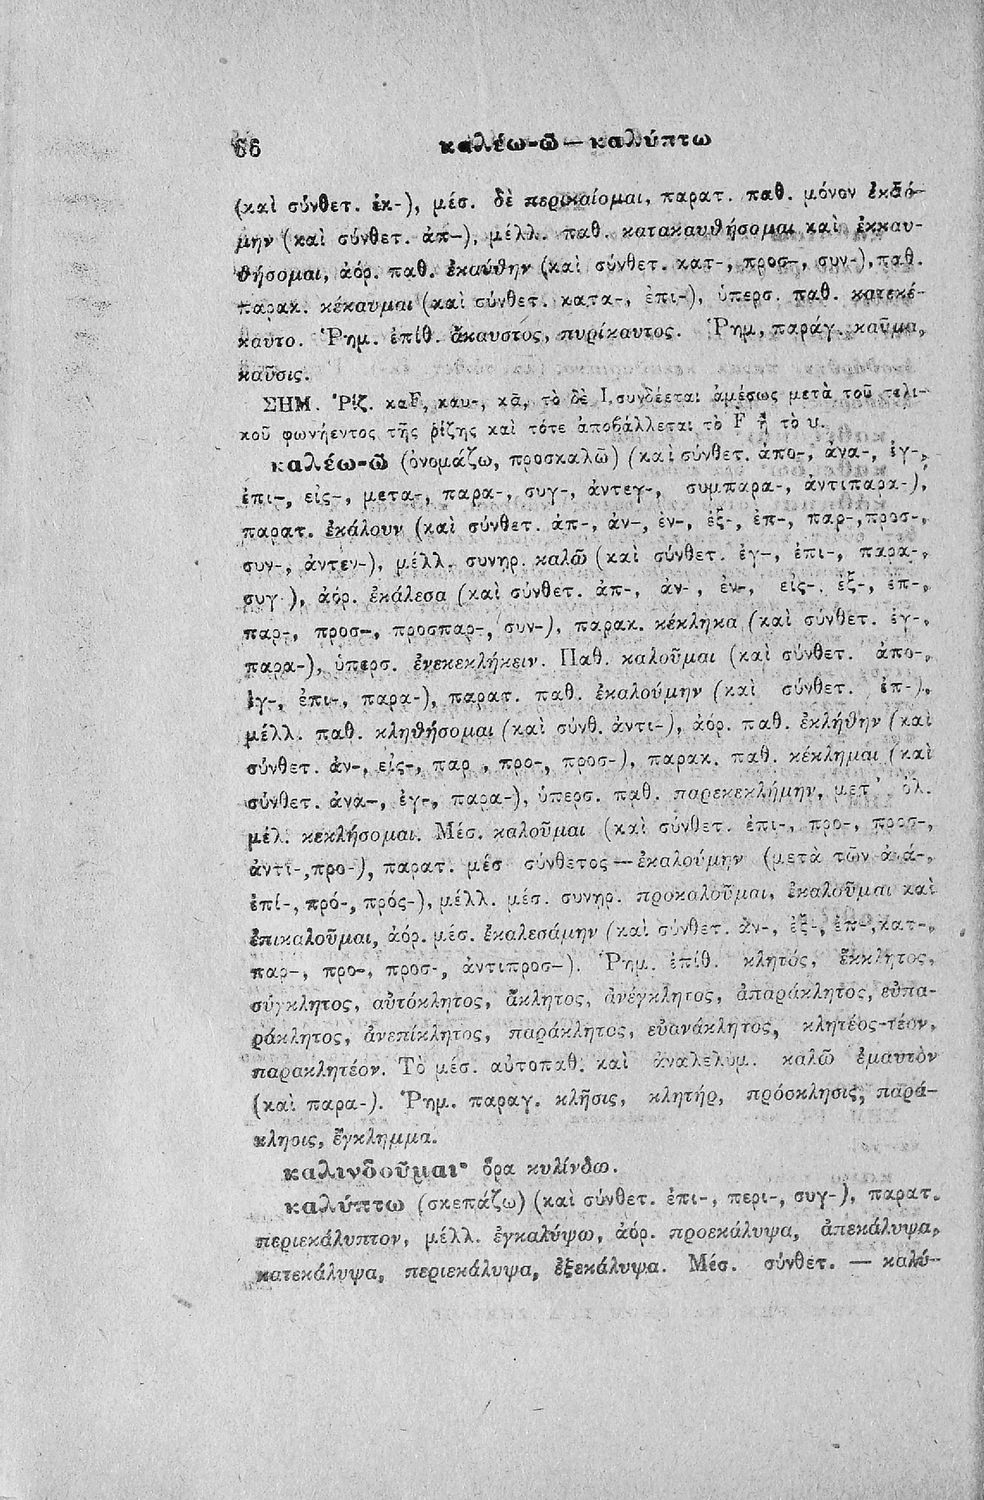 66 καλέω-ῶ — καλύπτω
(καὶ σύνθετ. ἐκ-), μέσ. δὲ περικαίομαι, παρατ. παθ. μόνον ἐκαό-
μην (καὶ σύνθετ. ἀπ-), μέλλ. παθ. κατακαυθήσομαι καὶ ἐκκαυ-
θήσομαι, ἀόρ. παθ. ἐκαύθην (καὶ σύνθετ. κατ-, προσ-, συν-), παθ.
παρακ. κέκαυμαι (καὶ σύνθετ. κατα-, ἐπι-), ὑπερσ. παθ. κατεκέ-
καυτο. Ῥημ. ἐπίθ. ἄκαυστος, πυρίκαυτος. Ῥημ. παράγ. καῦμα,
καῦσις.
ΣΗΜ. Ῥίζ. καF, καυ-, κᾱ, τὸ δὲ Ι, συνδέεται ἀμέσως μετὰ τοῦ τελι-
κοῦ φωνήεντος τῆς ῥίζης καὶ τότε ἀποβάλλεται τὸ F ἢ τὸ υ.
καλέω-ῶ (ὀνομάζω, προσκαλῶ) (καὶ σύνθετ. ἀπο-, ἀνα-, ἐγ-,
ἐπι-, εἰς-, μετα-, παρα-, συγ-, ἀντεγ-, συμπαρα-, ἀντιπαρα-),
παρατ. ἐκάλουν (καὶ σύνθετ. ἀπ-, ἀν-, ἐν-, ἐξ-, ἐπ-, παρ-, προσ-,
συν-, ἀντεν-), μέλλ. συνηρ. καλῶ (καὶ σύνθετ. ἐγ-, ἐπι-, παρα-,
συγ-), ἀόρ. ἐκάλεσα (καὶ σύνθετ. ἀπ-, ἀν-, ἐν-, εἰς-, ἐξ-, ἐπ-,
παρ-, προσ-, προσπαρ-, συν-), παρακ. κέκληκα (καὶ σύνθετ. ἐγ-,
παρα-), ὑπερσ. ἐνεκεκλήκειν. Παθ. καλοῦμαι (καὶ σύνθετ. ἀπο-,
ἐγ-, ἐπι-, παρα-), παρατ. παθ. ἐκαλούμην (καὶ σύνθετ. ἐπ-),
μέλλ. παθ. κληθήσομαι (καὶ σύνθ. ἀντι-), ἀόρ. παθ. ἐκλήθην (καὶ
σύνθετ. ἀν-, εἰς-, παρ-, προ-, προσ-), παρακ. παθ. κέκλημαι (καὶ
σύνθετ. ἀνα-, ἐγ-, παρα-), ὑπερσ. παθ. παρεκεκλήμην, μετ' ὀλ.
μέλ. κεκλήσομαι. Μέσ. καλοῦμαι (καὶ σύνθετ. ἐπι-, προ-, προσ-,
ἀντι-, προ-), παρατ. μέσ σύνθετος — ἐκαλούμην (μετὰ τῶν ἀνά-,
ἐπί-, πρό-, πρός-), μέλλ. μέσ. συνηρ. προκαλοῦμαι, ἐκαλοῦμαι καὶ
ἐπικαλοῦμαι, ἀόρ. μέσ. ἐκαλεσάμην (καὶ σύνθετ. ἀν-, ἐξ-, ἐπ-, κατ-,
παρ-, προ-, προσ-, ἀντιπροσ-). Ῥημ. ἐπίθ. κλητός, ἔκκλητος,
σύγκλητος, αὐτόκλητος, ἄκλητος, ἀνέγκλητος, ἀπαράκλητος, εὐπα-
ράκλητος, ἀνεπίκλητος, παράκλητος, εὐανάκλητος, κλητέος-τέον,
παρακλητέον. Τὸ μέσ. αὐτοπαθ. καὶ ἀναλελυμ. καλῶ ἐμαυτὸν
(καὶ παρα-). Ῥημ. παραγ. κλῆσις, κλητήρ, πρόσκλησις, παρά-
κλησις, ἔγκλημμα.
καλινδοῦμαι· ὅρα κυλίνδω.
καλύπτω (σκεπάζω) (καὶ σύνθετ. ἐπι-, περι-, συγ-), παρατ.
περιεκάλυπτον, μέλλ. ἐγκαλύψω, ἀόρ. προεκάλυψα, ἀπεκάλυψα,
κατεκάλυψα, περιεκάλυψα, ἐξεκάλυψα. Μέσ. σύνθετ. — καλύ-